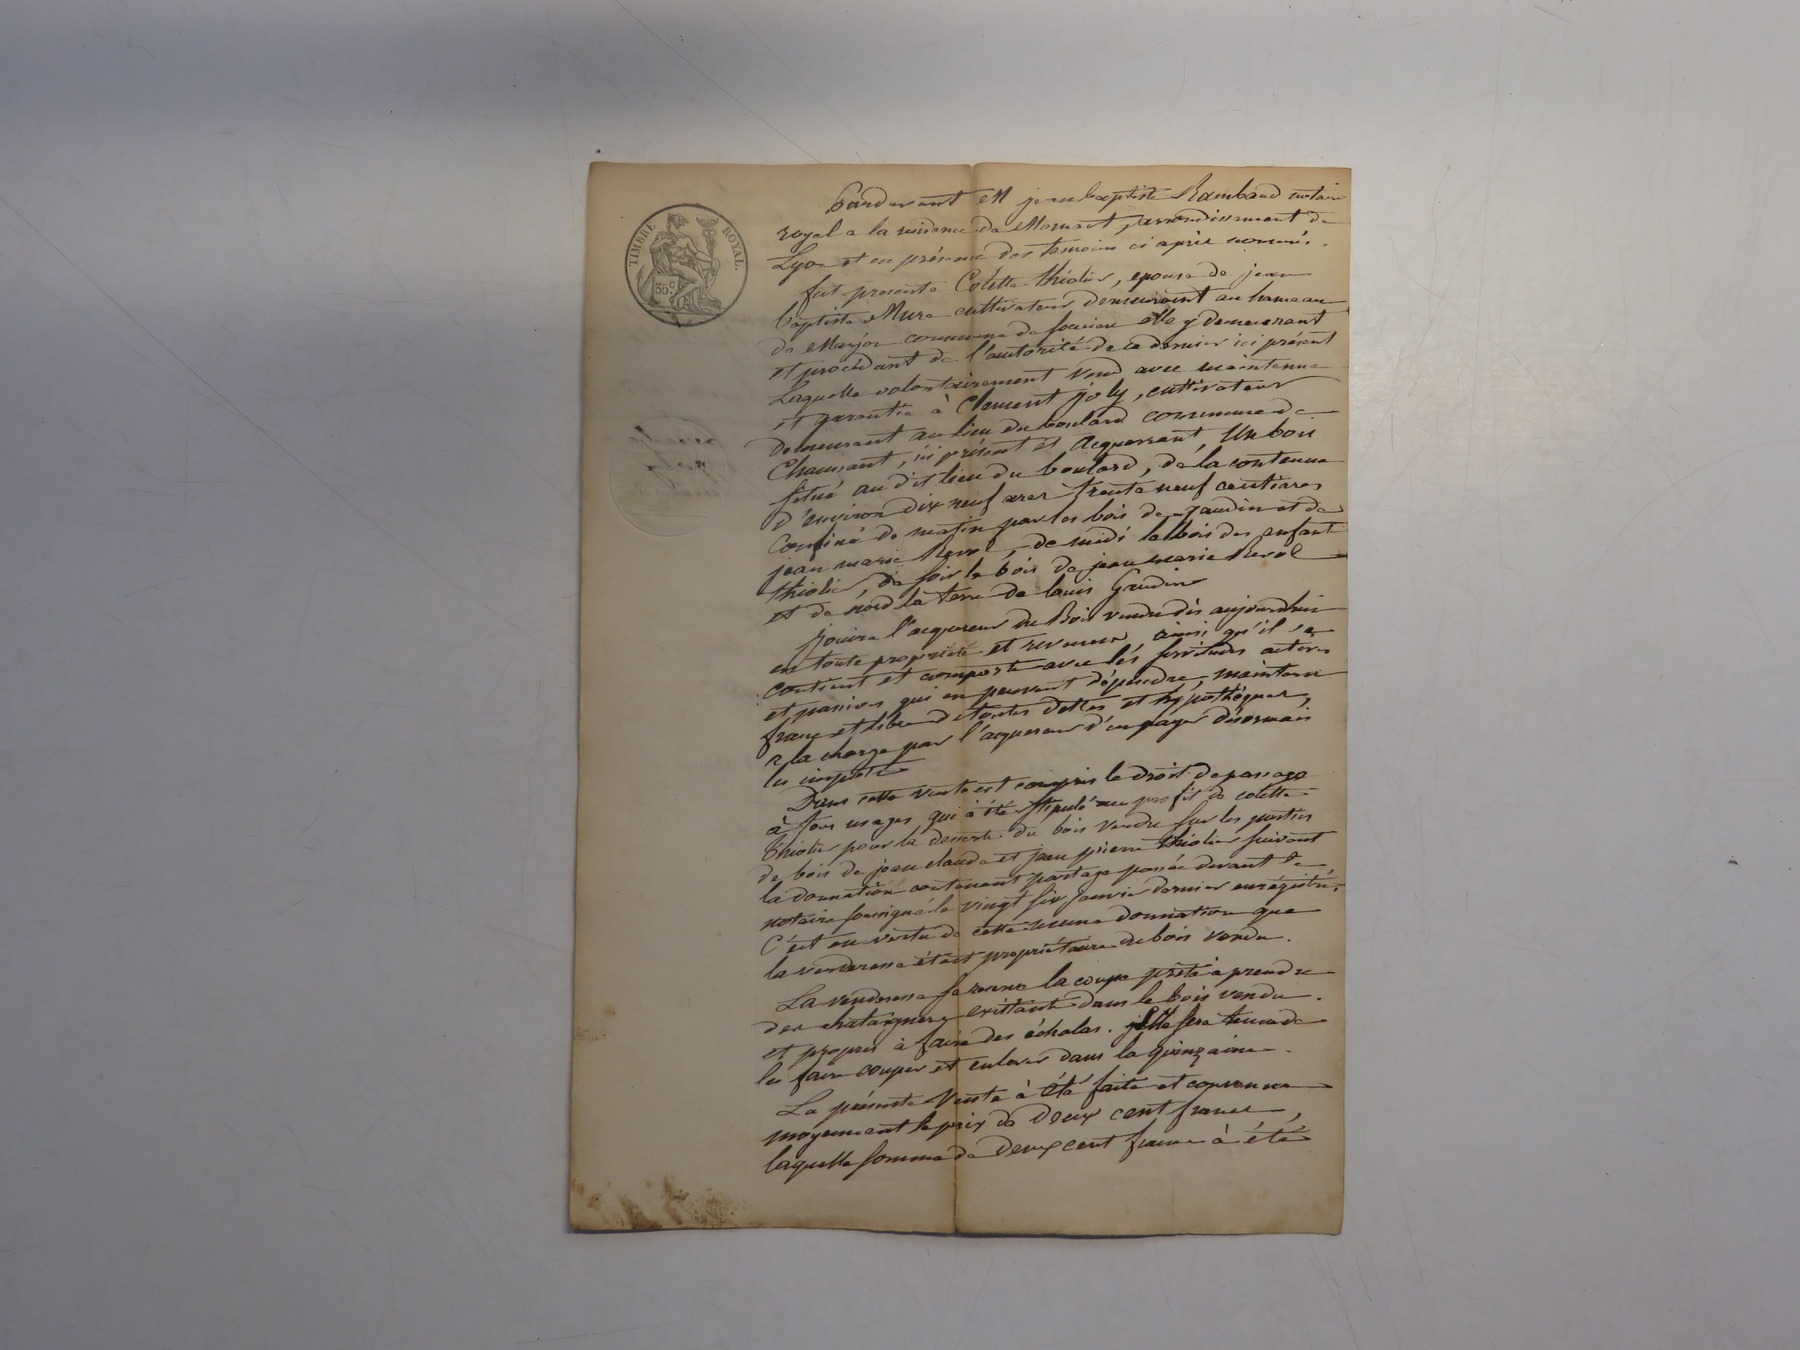 TIMBRE ROYAL.
35c
Pardevant M jean baptiste Rambaud notaire
royal a la residence de Mornant, arrondissement de
Lyon et en présence des temoins ci après nommés.
fut presente Colette thiolier, epouse de jean
baptiste Mure cultivateur demeurant au hameau
de Marjon commune de soucieu elle y demeurant
et procédant de l'autorité de ce dernier ici présent
Laquelle volontairement vend avec maintenue
et garantie à Clement joly, cultivateur
demeurant au lieu du boulard commune de
Chaussant, ici présent et acquerrant, Un bois
situé au dit lieu du boulard, de la contenue
d'environ dix neuf ares trente neuf centiares
confiné de matin par les bois de gaudin et de
jean marie Revol, de midi le bois des enfant
thiolier, de soir le bois de jean marie Revol
et de nord la terre de louis Gaudin
jouira l'acquereur du Bois vendu dès aujourdhui
en toute propriété et revenus, ainsi qu'il se
contient et comporte avec les servitudes actives
et passives qui en peuvent dépendre, maintenu
franc et libre de toutes dettes et hypothèques,
a la charge par l'acquereur d'en payer désormais
les impots
Dans cette vente est compris le droit de passage
à tous usages qui à été stipulé au profit de colette
thiolier pour la desserte du bois vendu sur les parties
de bois de jean claude et jean pierre thiolier suivant
la donnation contenant partage passée devant le
notaire soussigné le vingt six janvier dernier enrégistré,
C'est en vertu de cette meme donnation que
la venderesse étant propriétaire du bois vendu.
La venderesse se reserve la coupe prête à prendre
des chataigners existant dans le bois vendu.
et propres à faire des échalas. elle sera tenue de
les faire couper et enlever dans la quinzaine.
La présente Vente à été faite et convenue
moyennant le prix de deux cent francs,
laquelle somme de deux cent francs à été